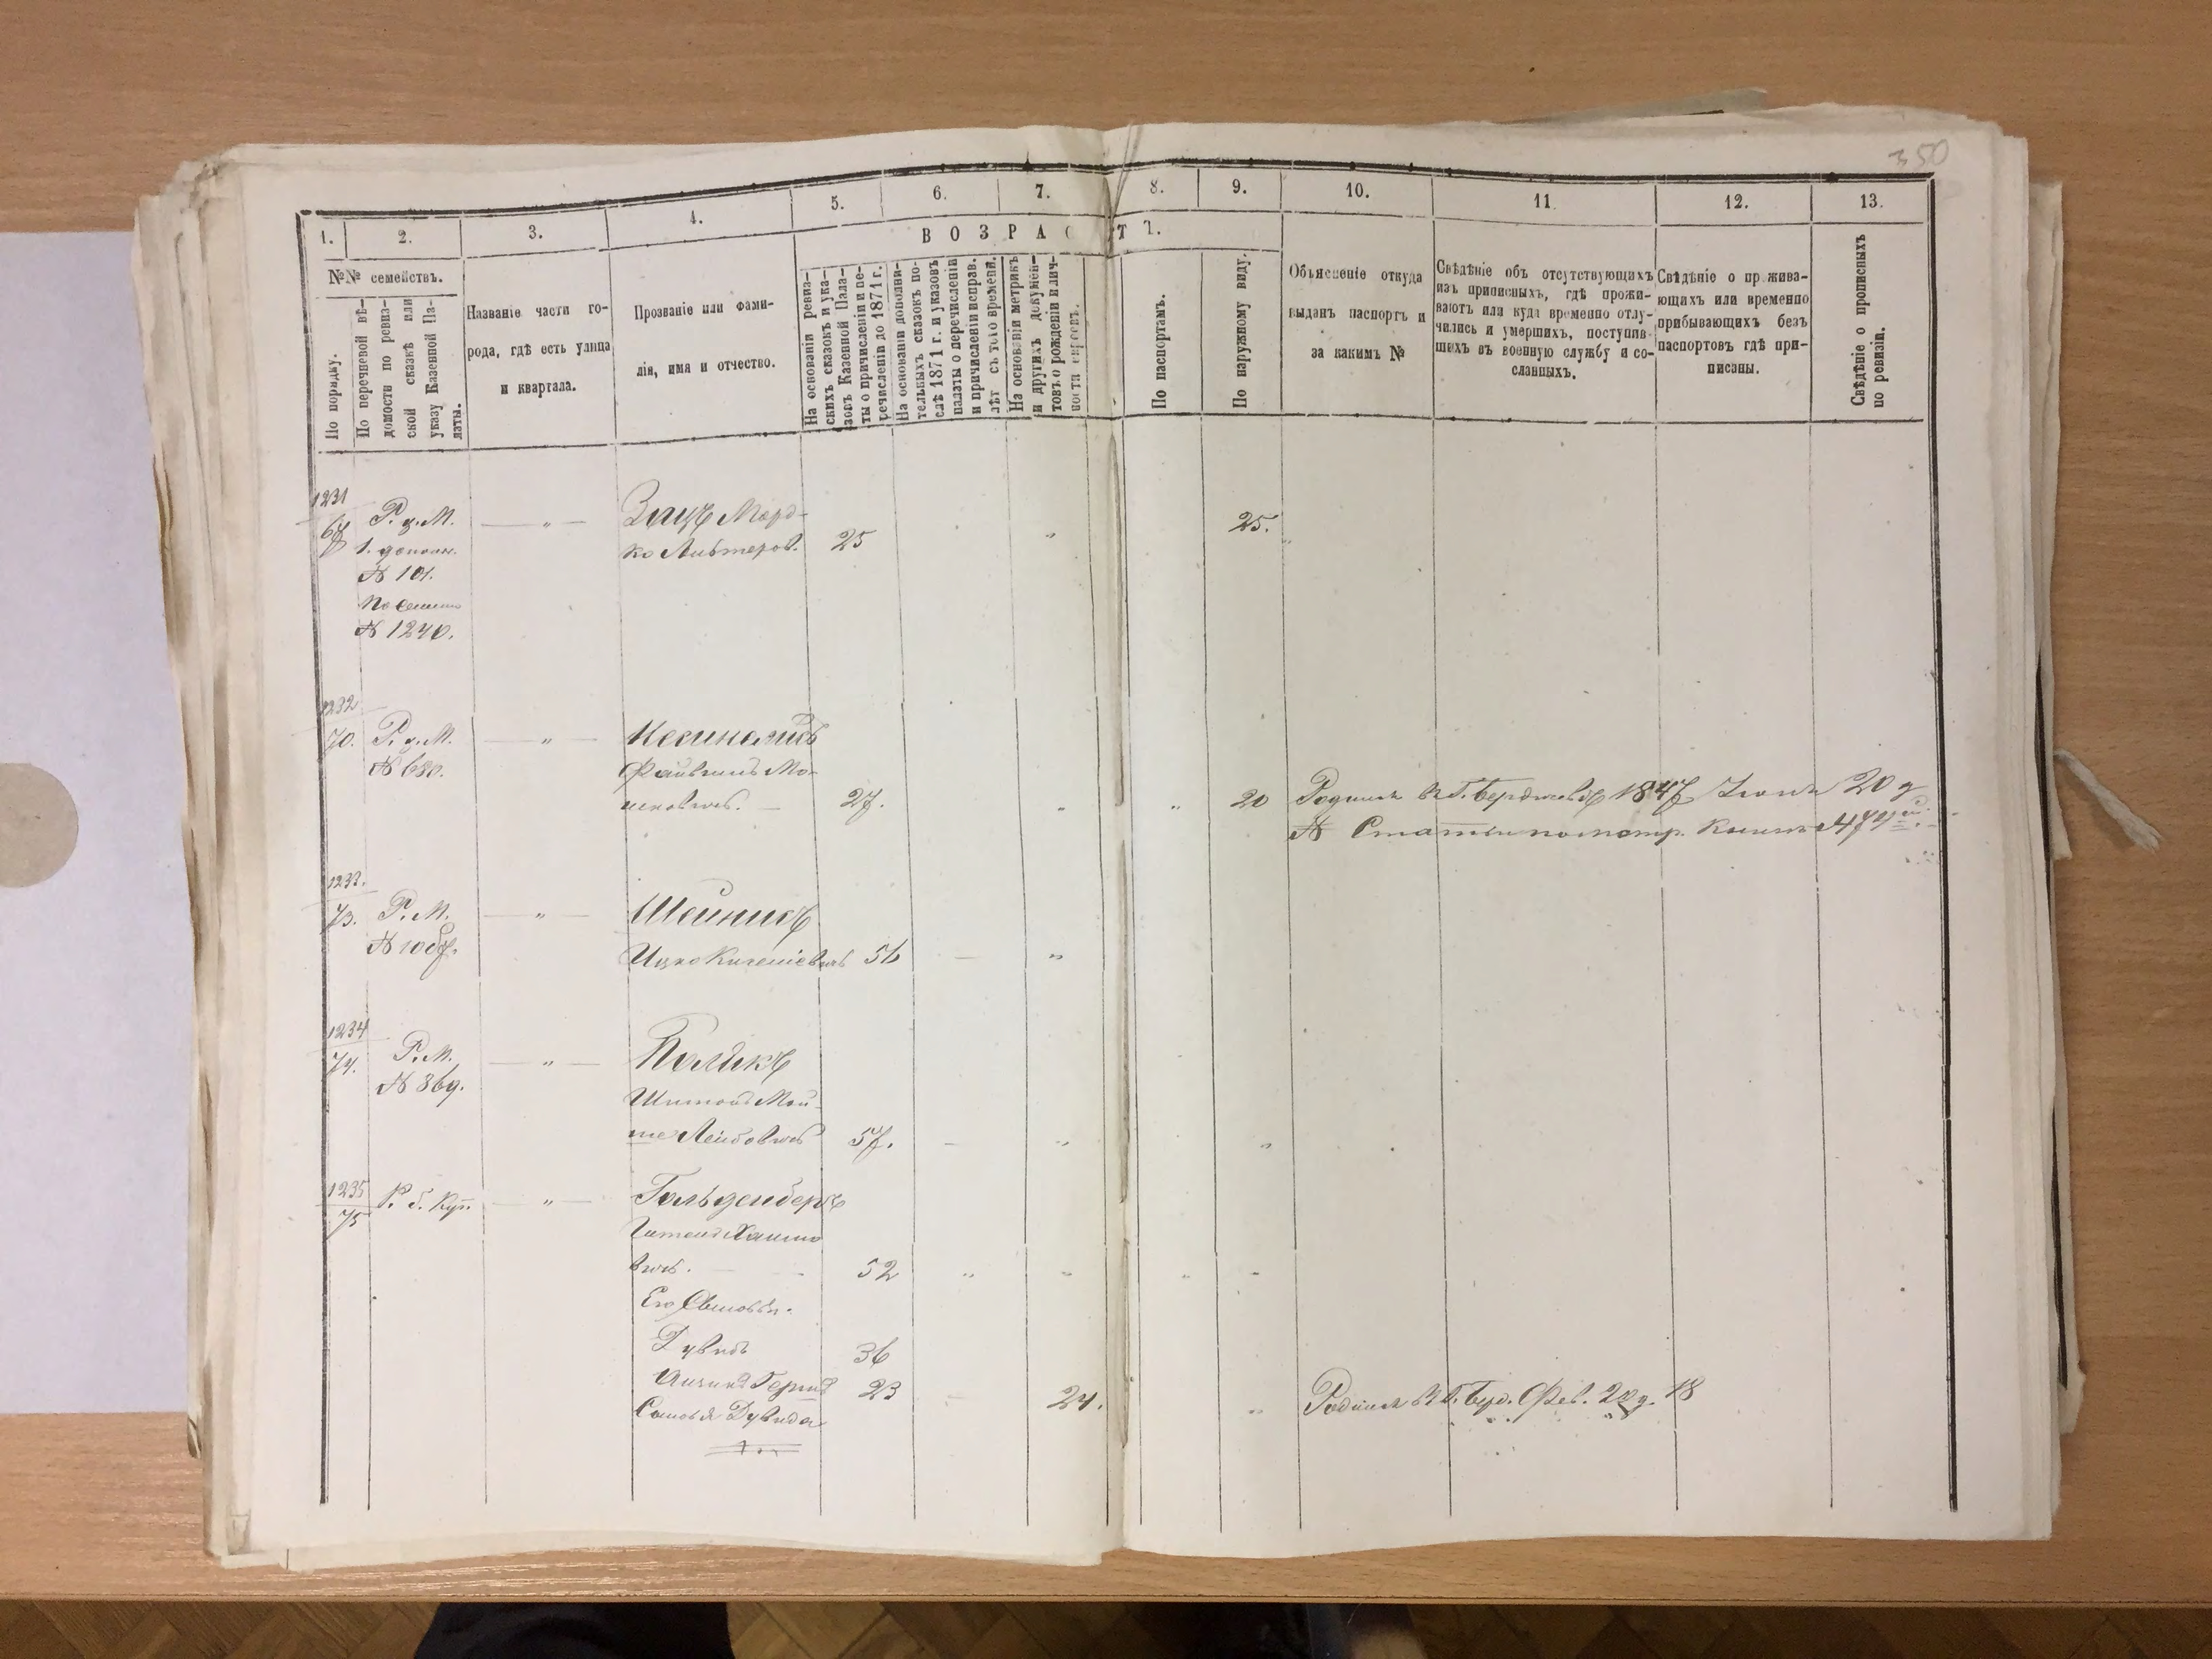 350
1. 2. 3. 4. 5. 6. 7. 8. 9. 10. 11 12. 13.
№№ семействъ.
По порядку.
По перечневой вѣ-
домости по ревиз-
ской сказкѣ или
указу Казенной Па-
латы.
Названіе части го-
рода, гдѣ есть улица
и квартала.
Прозваніе или фами-
лія, имя и отчество.
ВОЗРАСТЪ.
На основаніи ревиз-
скихъ сказокъ и ука-
зовъ Казенной Пала-
ты о причисленіи и пе-
речисленіи до 1871 г.
На основаніи дополни-
тельныхъ сказокъ по-
слѣ 1871 г. и указовъ
палаты о перечисленіи
и причисленіи исправ.
лѣт съ того времени.
На основаніи метрикъ
и другихъ докумен-
товъ о рожденіи и лич-
ности евреевъ.
По паспортамъ.
По наружному виду.
Объясненіе откуда
выданъ паспортъ и
за какимъ №
Свѣдѣніе объ отсутствующихъ
изъ приписныхъ, гдѣ прожи-
ваютъ или куда временно отлу-
чились и умершихъ, поступив-
шихъ въ военную службу и со-
сланныхъ.
Свѣдѣніе о прожива-
ющихъ или временно
прибывающихъ безъ
паспортовъ гдѣ при-
писаны.
Свѣдѣніе о прописныхъ
по ревизіи.
1231
Р. д. М. — " — Заяцъ Морд-
1. дополн. ко 25 " 25.
№ 101.
№ 1240.
1232
70. Р. д. М. — " —
№ 680. Мо-
шковичъ. — 27. " " 20 Родился въ Г. Бердичевѣ 1847 20 д
№ Статьи по метр.
1233.
73. Р. М. — " — Шейнисъ
Ицко 56 — "
1234
74. Р. М. — " —
№ 369. Шимонъ Мош-
ше Лейбовичъ 57. — " "
1235
75 Р. б. Куп. — " — Гольденбергъ
Хаимо
вичъ. — 52 " " " "
Его Сыновья.
Дувидъ 36
23 — 24. " Родился въ Г. Берд. Фев. 22 д. 18
Сыновья Дувида